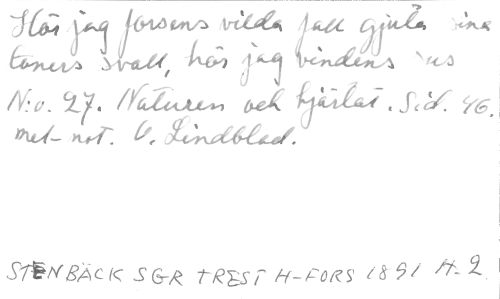 Hör jag forsens vilda fall gjuta sina
toners svall, hör jag vindens sus
N:o. 27. Naturen och hjärtat. Sid. 46.
met-not. O. Lindblad.
STENBÄCK SGR TREST H-FORS 1891 H.2